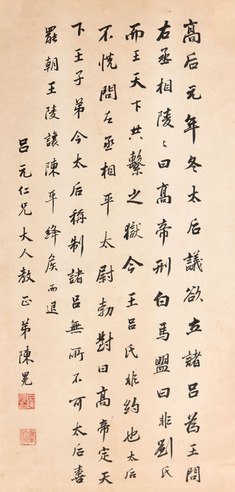 高后元年冬太后議欲立諸呂為王問
右丞相陵〻曰高帝刑白馬盟曰非劉氏
而王天下共繫之獄今王呂氏非約也太后
不悅問左丞相平太尉勃對曰高帝定天
下王子弟今太后稱制諸呂無所不可太后喜
罷朝王陵讓陳平絳矦而退
呂元仁兄大人教正 弟陳冕